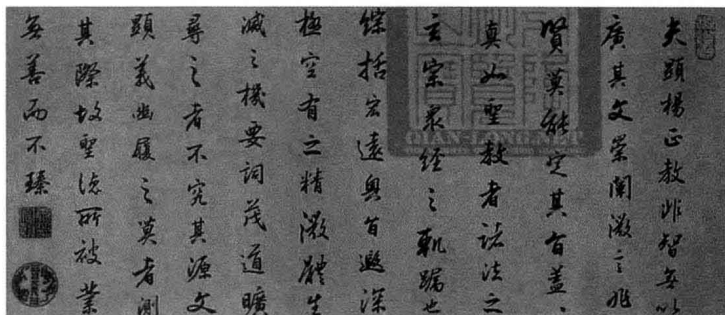 夫顯揚正教非智無以
廣其文崇闡微言非
賢莫能定其旨蓋
真如聖教者諸法之
玄宗衆經之軌躅也
綜括宏遠奧旨遐深
極空有之精微體生
滅之機要詞茂道曠
尋之者不究其源文
顯義幽履之莫者測
其際故聖德所被業
無善而不臻
QIAN-LONG.NET